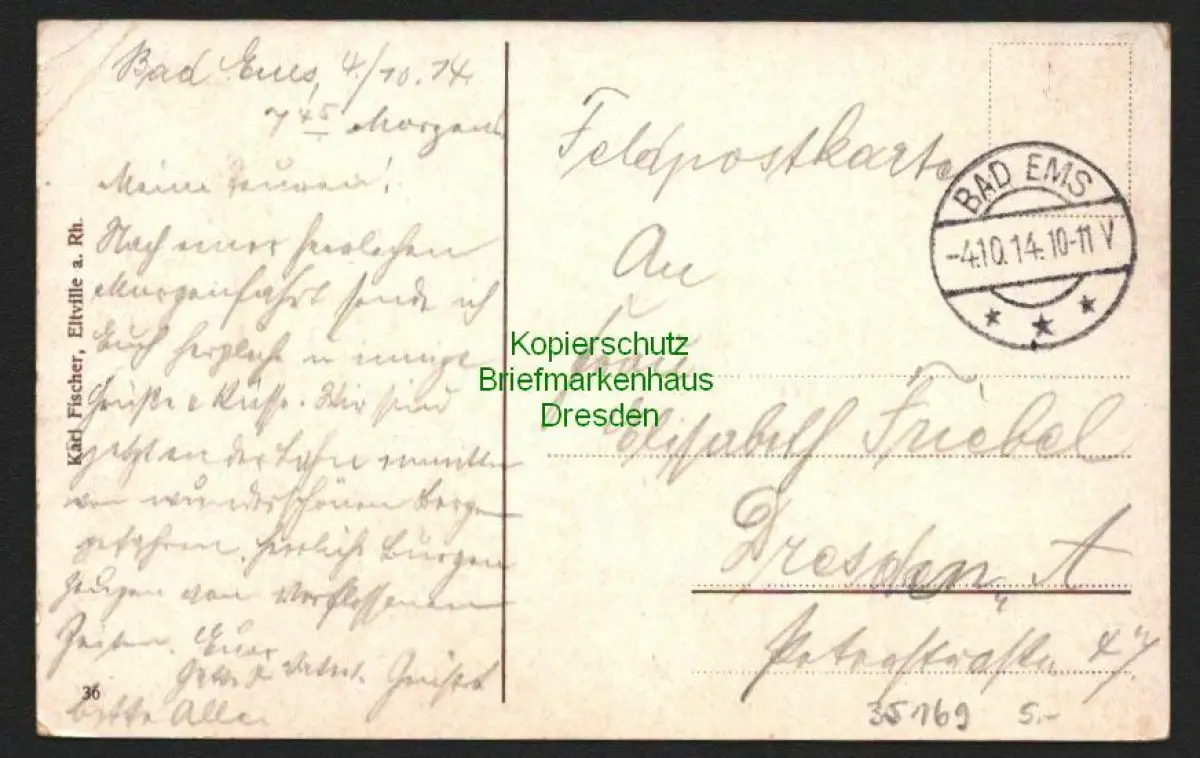 Bad Ems, 4/10.14.
7 45 Morgens
Meine Teuren!
Nach einer herrlichen
Morgenfahrt sende ich
Euch herzliche u innige
Grüße & Küsse. Wir sind
jetzt an der Lahn inmitten
von wunderschönen Bergen
gefahren. Herrliche Burgen
zeugen von verflossenen
Zeiten. Euer
Grüßt
bitte Alle.
Karl Fischer, Eltville a. Rh.
36
Feldpostkarte
An
Frau
Elisabeth Friebel
Dresden, A
4 II
BAD EMS
-4.10.14.10-11 V
Kopierschutz
Briefmarkenhaus
Dresden
35169 5.-